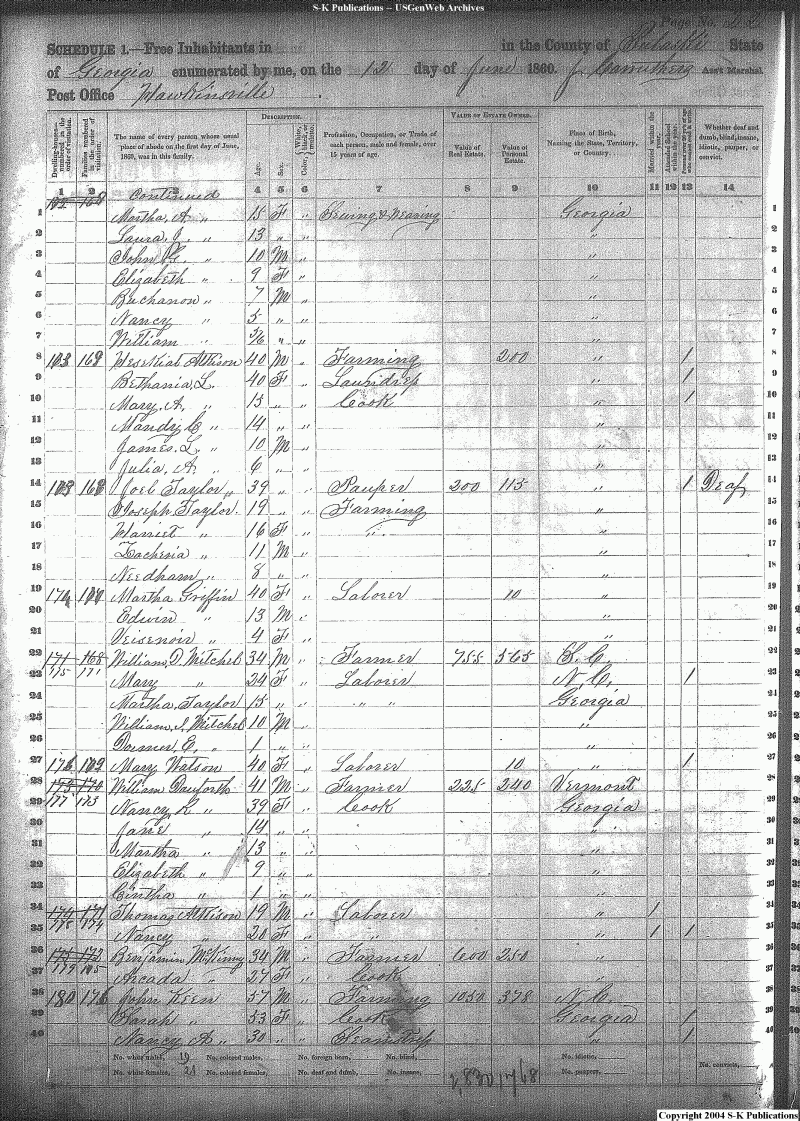 S-K Publications -- USGenWeb Archives
Page No.
SCHEDULE 1.—Free Inhabitants in in the County of Pulaski State
of Georgia enumerated by me, on the 12 day of June 1860. J. Carruthers Ass't Marshal.
Post Office Hawkinsville
Dwelling-houses numbered in the order of visitation. Families numbered in the order of visitation. The name of every person whose usual place of abode on the first day of June, 1860, was in this family. DESCRIPTION. Age. Sex. Color, White, black, or mulatto. Profession, Occupation, or Trade of each person, male and female, over 15 years of age. VALUE OF ESTATE OWNED. Value of Real Estate. Value of Personal Estate. Place of Birth, Naming the State, Territory, or Country. Married within the year. Attended School within the year. Persons over 20 y'rs of age who cannot read & write. Whether deaf and dumb, blind, insane, idiotic, pauper, or convict.
1 2 3 4 5 6 7 8 9 10 11 12 13 14
Continued
1 Martha, A. " 15 F " Sewing & Weaving Georgia 1
2 Laura, J. " 13 " " " 2
3 John G. " 10 M " " 3
4 Elizabeth " 9 F " " 4
5 Buchanon " 7 M " " 5
6 Nancy " 5 " " " 6
7 William " " " " 7
8 163 169 Hesekiah Attison 40 M " Farming 200 " 1 8
9 Bethania, L. 40 F " Laundress " 1 9
10 Mary, A. " 15 " " Cook " 1 10
11 Mandy C " 14 " " " 11
12 James, L. " 10 M " " 12
13 Julia, A. " 6 " " " 13
14 Joel Taylor " 39 " " Pauper 200 115 " 1 Deaf 14
15 Joseph Taylor 19 " " Farming " 15
16 Harriet " 16 F " " " 16
17 Zacheria " 11 M " " 17
18 Needham " 8 " " " 18
19 Martha Griffin 40 F " Laborer 10 " 19
20 Edwin " 13 M " " 20
21 Veisenoir " 4 F " " 21
22 171 168 William, D. Mitchel 34 M " Farmer 755 565 S. C. 22
23 175 171 Mary " 24 F " Laborer N. C. 1 23
24 Martha, Taylor 15 " " " " Georgia 24
25 William, J. Mitchel 10 M " " 25
26 Damer E. " 1 " " " 26
27 Mary Watson 40 F " Laborer 10 " 1 27
28 175 170 William Danforth 41 M " Farmer 225 240 Vermont 28
29 177 173 Nancy, K. " 39 F " Cook Georgia 29
30 Jane " 14 " " " 30
31 Martha " 13 " " " 31
32 Elizabeth " 9 " " " 32
33 Cintha " 1 " " " 33
34 174 171 Thomas Attison 19 M " Laborer " 1 34
35 178 174 Nancy " 20 F " " " 1 1 35
36 175 172 Benjamin McKinny 34 M " Farmer 600 250 " 36
37 179 175 Arcada " 27 F " Cook " 37
38 180 176 John Keen 57 M " Farming 1050 378 N. C. 38
39 Sarah " 53 F " Cook Georgia 1 39
40 Nancy A " 30 " " Seamstress " 1 40
No. white males, 19 No. colored males, No. foreign born, No. blind, No. idiotic,
No. white females, 21 No. colored females, No. deaf and dumb, No. insane, 2,830 1768 No. paupers, No. convicts,
Copyright 2004 S-K Publications